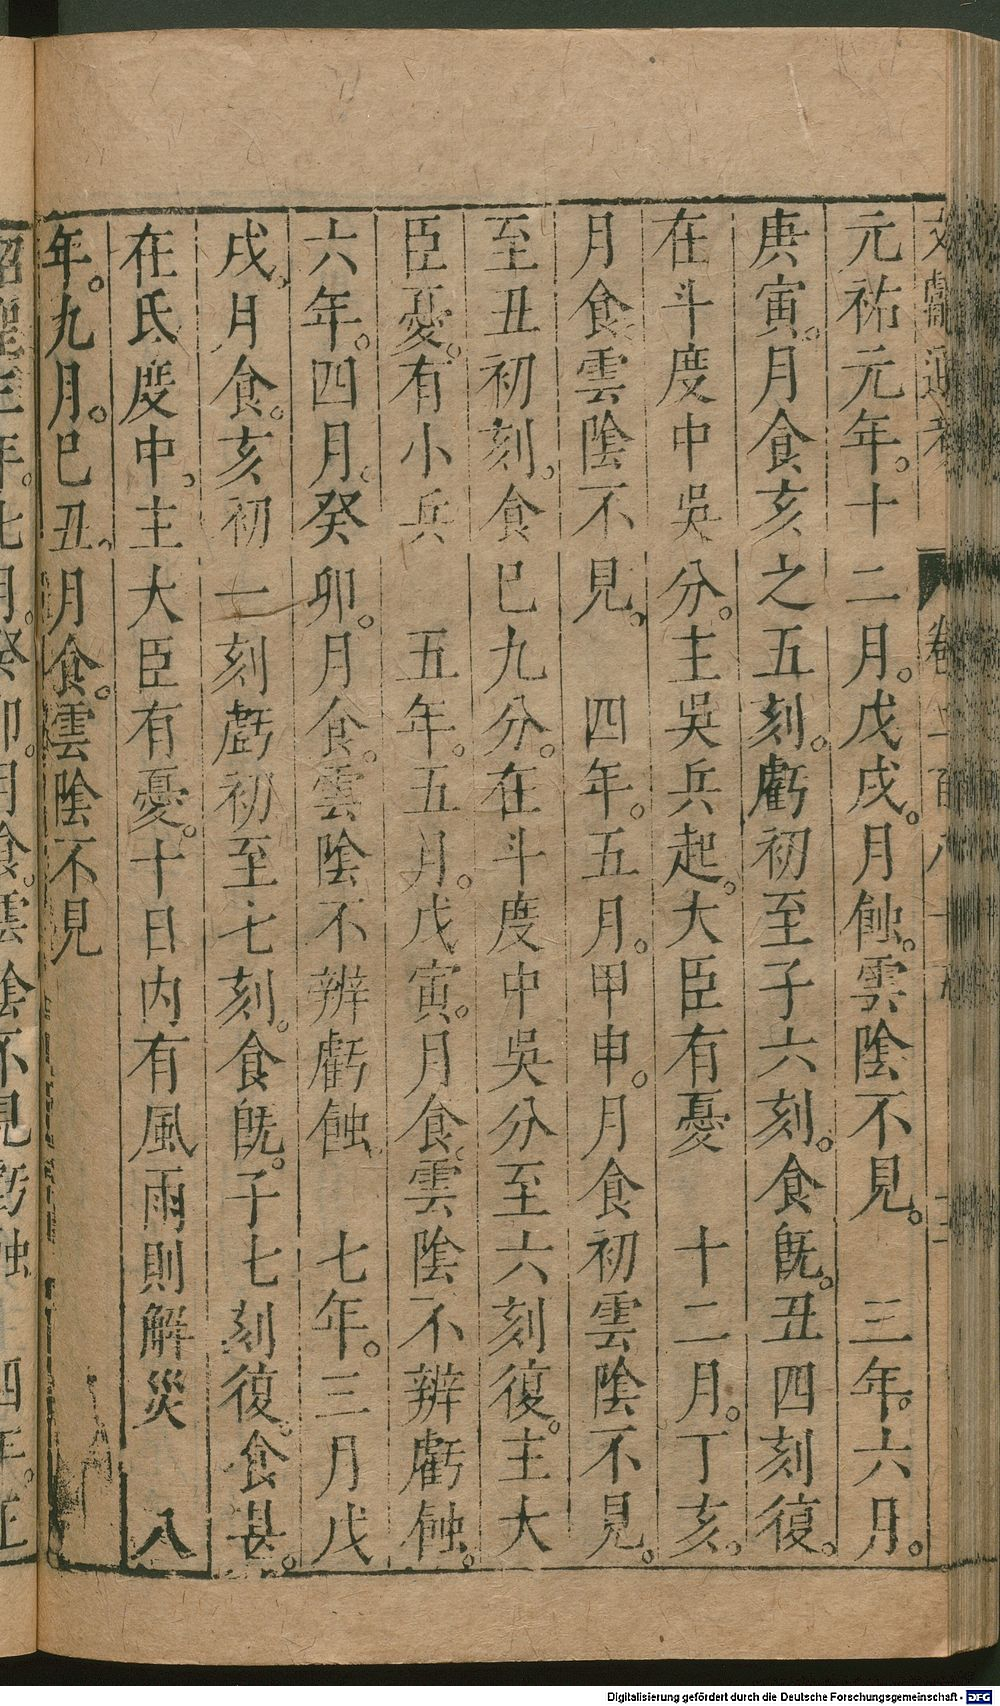 元祐元年。十二月。戊戌。月蝕。雲陰不見。　三年。六月。
庚寅。月食亥之五刻。虧初至子六刻。食旣。丑四刻復。
在斗度中吳分。主吳兵起。大臣有憂　十二月。丁亥。
月食雲陰不見。　四年。五月。甲申。月食初雲陰不見。
至丑初刻。食巳九分。在斗度中吳分至六刻復。主大
臣憂。有小兵　五年。五月。戊寅。月食。雲陰不辨虧蝕。
六年。四月。癸卯。月食。雲陰不辨虧蝕　七年。三月戊
戌。月食。亥初一刻虧初至七刻。食旣。子七刻復。食甚。
在氐度中。主大臣有憂。十日内有風雨則解災　八
年。九月。巳丑。月食。雲陰不見
Digitalisierung gefördert durch die Deutsche Forschungsgemeinschaft - DFG